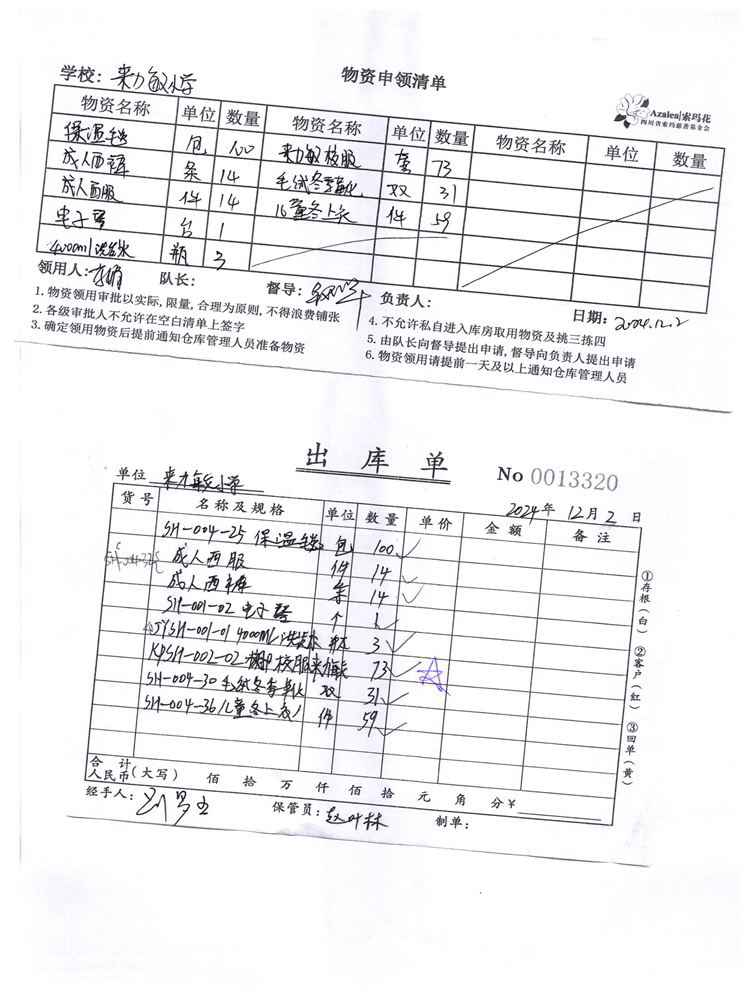 物资申领清单
学校：来力敏小学
Azalea|索玛花
四川省索玛慈善基金会
物资名称 单位 数量 物资名称 单位 数量 物资名称 单位 数量
保温毯 包 100 来力敏校服 套 73
成人西裤 条 14 毛绒冬季靴 双 31
成人西服 件 14 童冬上衣 件 59
电子琴 台 1
4000ml洗发水 瓶 3
领用人： 队长： 督导： 负责人： 日期：2024.12.2
1. 物资领用审批以实际，限量，合理为原则，不得浪费铺张
2. 各级审批人不允许在空白清单上签字
3. 确定领用物资后提前通知仓库管理人员准备物资
4. 不允许私自进入库房取用物资及挑三拣四
5. 由队长向督导提出申请，督导向负责人提出申请
6. 物资领用请提前一天及以上通知仓库管理人员
出库单
No 0013320
单位 来力敏小学
2024年 12月 2日
货号 名称及规格 单位 数量 单价 金额 备注
SH-004-25 保温毯 包 100
成人西服 件 14
成人西裤 条 14
SH-001-02 电子琴 个 1
SH-001-01 4000ML洗发水 瓶 3
XPSH-002-02 校服来力敏 73
SH-004-30 毛绒冬季靴 双 31
SH-004-36 儿童冬上衣 件 59
合计
人民币（大写） 佰 拾 万 仟 佰 拾 元 角 分 ¥
经手人： 保管员：赵叶林 制单：
①存根（白） ②客户（红） ③回单（黄）